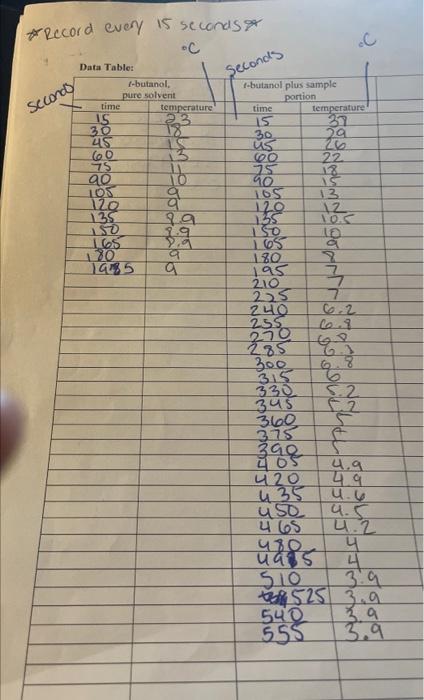 *Record every 15 seconds*
°C seconds °C
Data Table:
seconds
t-butanol, pure solvent t-butanol plus sample portion
time temperature time temperature
15 23 15 39
30 18 30 29
45 15 45 26
60 13 60 22
75 11 75 18
90 10 90 15
105 9 105 13
120 9 120 12
135 8.9 135 10.5
150 8.9 150 10
165 8.9 165 9
180 9 180 8
195 9 195 7
210 7
225 7
240 6.2
255 6.8
270
285
300 6.8
315 6
330 5.2
345 5.2
360 5
375 5
390 5
405 4.9
420 4.9
435 4.6
450 4.5
465 4.2
480 4
495 4
510 3.9
525 3.9
540 3.9
555 3.9